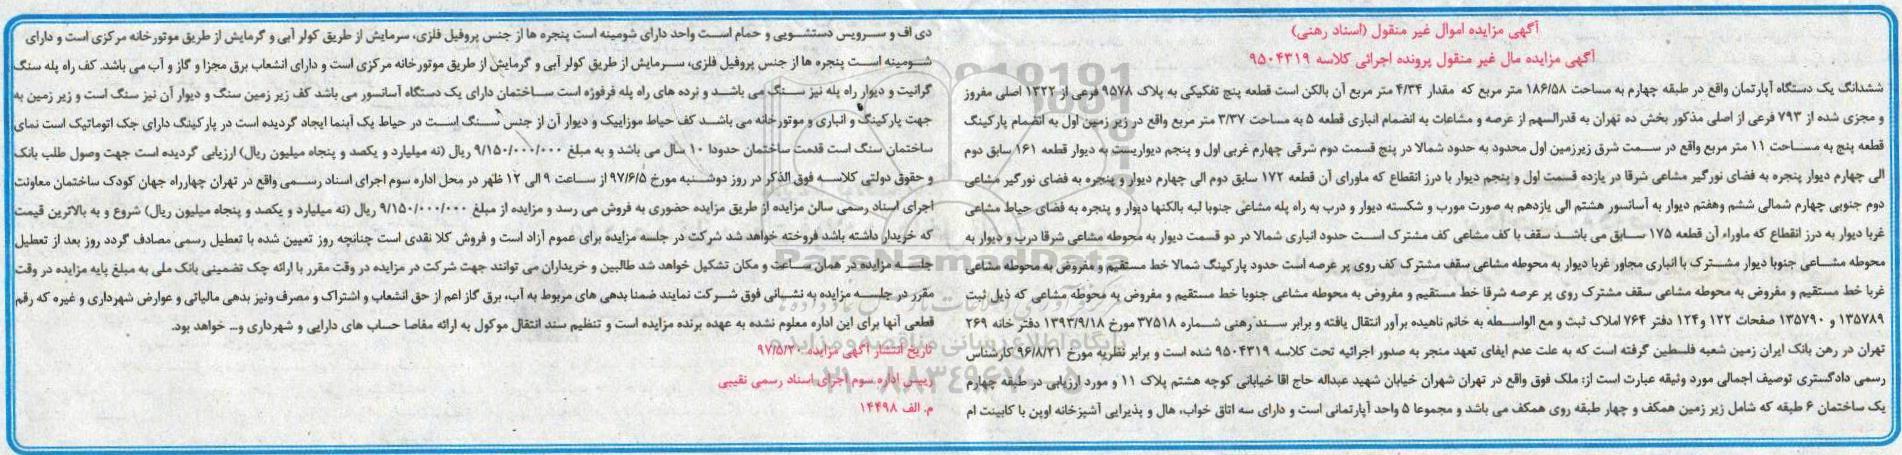 آگهی مزایده اموال غیر منقول (اسناد رهنی)
آگهی مزایده مال غیر منقول پرونده اجرائی کلاسه ۹۵۰۴۳۱۹
ششدانگ یک دستگاه آپارتمان واقع در طبقه چهارم به مساحت ۱۸۶/۵۸ متر مربع که مقدار ۴/۳۴ متر مربع آن بالکن است قطعه پنج تفکیکی به پلاک ۹۵۷۸ فرعی از ۱۳۲۲ اصلی مفروز
و مجزی شده از ۷۹۳ فرعی از اصلی مذکور بخش ده تهران به قدرالسهم از عرصه و مشاعات به انضمام انباری قطعه ۵ به مساحت ۳/۳۷ متر مربع واقع در زیر زمین اول به انضمام پارکینگ
قطعه پنج به مساحت ۱۱ متر مربع واقع در سمت شرق زیرزمین اول محدود به حدود شمالا در پنج قسمت دوم شرقی چهارم غربی اول و پنجم دیواریست به دیوار قطعه ۱۶۱ سابق دوم
الی چهارم دیوار پنجره به فضای نورگیر مشاعی شرقا در یازده قسمت اول و پنجم دیوار با درز انقطاع که ماورای آن قطعه ۱۷۲ سابق دوم الی چهارم دیوار و پنجره به فضای نورگیر مشاعی
دوم جنوبی چهارم شمالی ششم وهفتم دیوار به آسانسور هشتم الی یازدهم به صورت مورب و شکسته دیوار و درب به راه پله مشاعی جنوبا لبه بالکنها دیوار و پنجره به فضای حیاط مشاعی
غربا دیوار به درز انقطاع که ماوراء آن قطعه ۱۷۵ سابق می باشد سقف با کف مشاعی کف مشترک است حدود انباری شمالا در دو قسمت دیوار به محوطه مشاعی شرقا درب و دیوار به
محوطه مشاعی جنوبا دیوار مشترک با انباری مجاور غربا دیوار به محوطه مشاعی سقف مشترک کف روی پر عرصه است حدود پارکینگ شمالا خط مستقیم و مفروض به محوطه مشاعی
غربا خط مستقیم و مفروض به محوطه مشاعی سقف مشترک روی پر عرصه شرقا خط مستقیم و مفروض به محوطه مشاعی جنوبا خط مستقیم و مفروض به محوطه مشاعی که ذیل ثبت
۱۳۵۷۸۹ و ۱۳۵۷۹۰ صفحات ۱۲۲ و۱۲۴ دفتر ۷۶۴ املاک ثبت و مع الواسطه به خانم ناهیده برآور انتقال یافته و برابر سند رهنی شماره ۳۷۵۱۸ مورخ ۱۳۹۳/۹/۱۸ دفتر خانه ۲۶۹
تهران در رهن بانک ایران زمین شعبه فلسطین گرفته است که به علت عدم ایفای تعهد منجر به صدور اجرائیه تحت کلاسه ۹۵۰۴۳۱۹ شده است و برابر نظریه مورخ ۹۶/۸/۲۱ کارشناس
رسمی دادگستری توصیف اجمالی مورد وثیقه عبارت است از: ملک فوق واقع در تهران شهران خیابان شهید عبداله حاج اقا خیابانی کوچه هشتم پلاک ۱۱ و مورد ارزیابی در طبقه چهارم
یک ساختمان ۶ طبقه که شامل زیر زمین همکف و چهار طبقه روی همکف می باشد و مجموعا ۵ واحد آپارتمانی است و دارای سه اتاق خواب، هال و پذیرایی آشپزخانه اوپن با کابینت ام
دی اف و سرویس دستشویی و حمام است واحد دارای شومینه است پنجره ها از جنس پروفیل فلزی، سرمایش از طریق کولر آبی و گرمایش از طریق موتورخانه مرکزی است و دارای
شومینه است پنجره ها از جنس پروفیل فلزی، سرمایش از طریق کولر آبی و گرمایش از طریق موتورخانه مرکزی است و دارای انشعاب برق مجزا و گاز و آب می باشد. کف راه پله سنگ
گرانیت و دیوار راه پله نیز سنگ می باشد و نرده های راه پله فرفوژه است ساختمان دارای یک دستگاه آسانسور می باشد کف زیر زمین سنگ و دیوار آن نیز سنگ است و زیر زمین به
جهت پارکینگ و انباری و موتورخانه می باشد کف حیاط موزاییک و دیوار آن از جنس سنگ است در حیاط یک آبنما ایجاد گردیده است در پارکینگ دارای جک اتوماتیک است نمای
ساختمان سنگ است قدمت ساختمان حدودا ۱۰ سال می باشد و به مبلغ ۹/۱۵۰/۰۰۰/۰۰۰ ریال (نه میلیارد و یکصد و پنجاه میلیون ریال) ارزیابی گردیده است جهت وصول طلب بانک
و حقوق دولتی کلاسه فوق الذکر در روز دوشنبه مورخ ۹۷/۶/۵ از ساعت ۹ الی ۱۲ ظهر در محل اداره سوم اجرای اسناد رسمی واقع در تهران چهارراه جهان کودک ساختمان معاونت
اجرای اسناد رسمی سالن مزایده از طریق مزایده حضوری به فروش می رسد و مزایده از مبلغ ۹/۱۵۰/۰۰۰/۰۰۰ ریال (نه میلیارد و یکصد و پنجاه میلیون ریال) شروع و به بالاترین قیمت
که خریدار داشته باشد فروخته خواهد شد شرکت در جلسه مزایده برای عموم آزاد است و فروش کلا نقدی است چنانچه روز تعیین شده با تعطیل رسمی مصادف گردد روز بعد از تعطیل
جلسه مزایده در همان ساعت و مکان تشکیل خواهد شد طالبین و خریداران می توانند جهت شرکت در مزایده در وقت مقرر با ارائه چک تضمینی بانک ملی به مبلغ پایه مزایده در وقت
مقرر در جلسه مزایده به نشانی فوق شرکت نمایند ضمنا بدهی های مربوط به آب، برق گاز اعم از حق انشعاب و اشتراک و مصرف ونیز بدهی مالیاتی و عوارض شهرداری و غیره که رقم
قطعی آنها برای این اداره معلوم نشده به عهده برنده مزایده است و تنظیم سند انتقال موکول به ارائه مفاصا حساب های دارایی و شهرداری و... خواهد بود.
تاریخ انتشار آگهی مزایده ۹۷/۵/۲۰
رییس اداره سوم اجرای اسناد رسمی نقیبی
م. الف ۱۴۴۹۸
ParsNamadData
پایگاه اطلاع رسانی مناقصه و مزایده